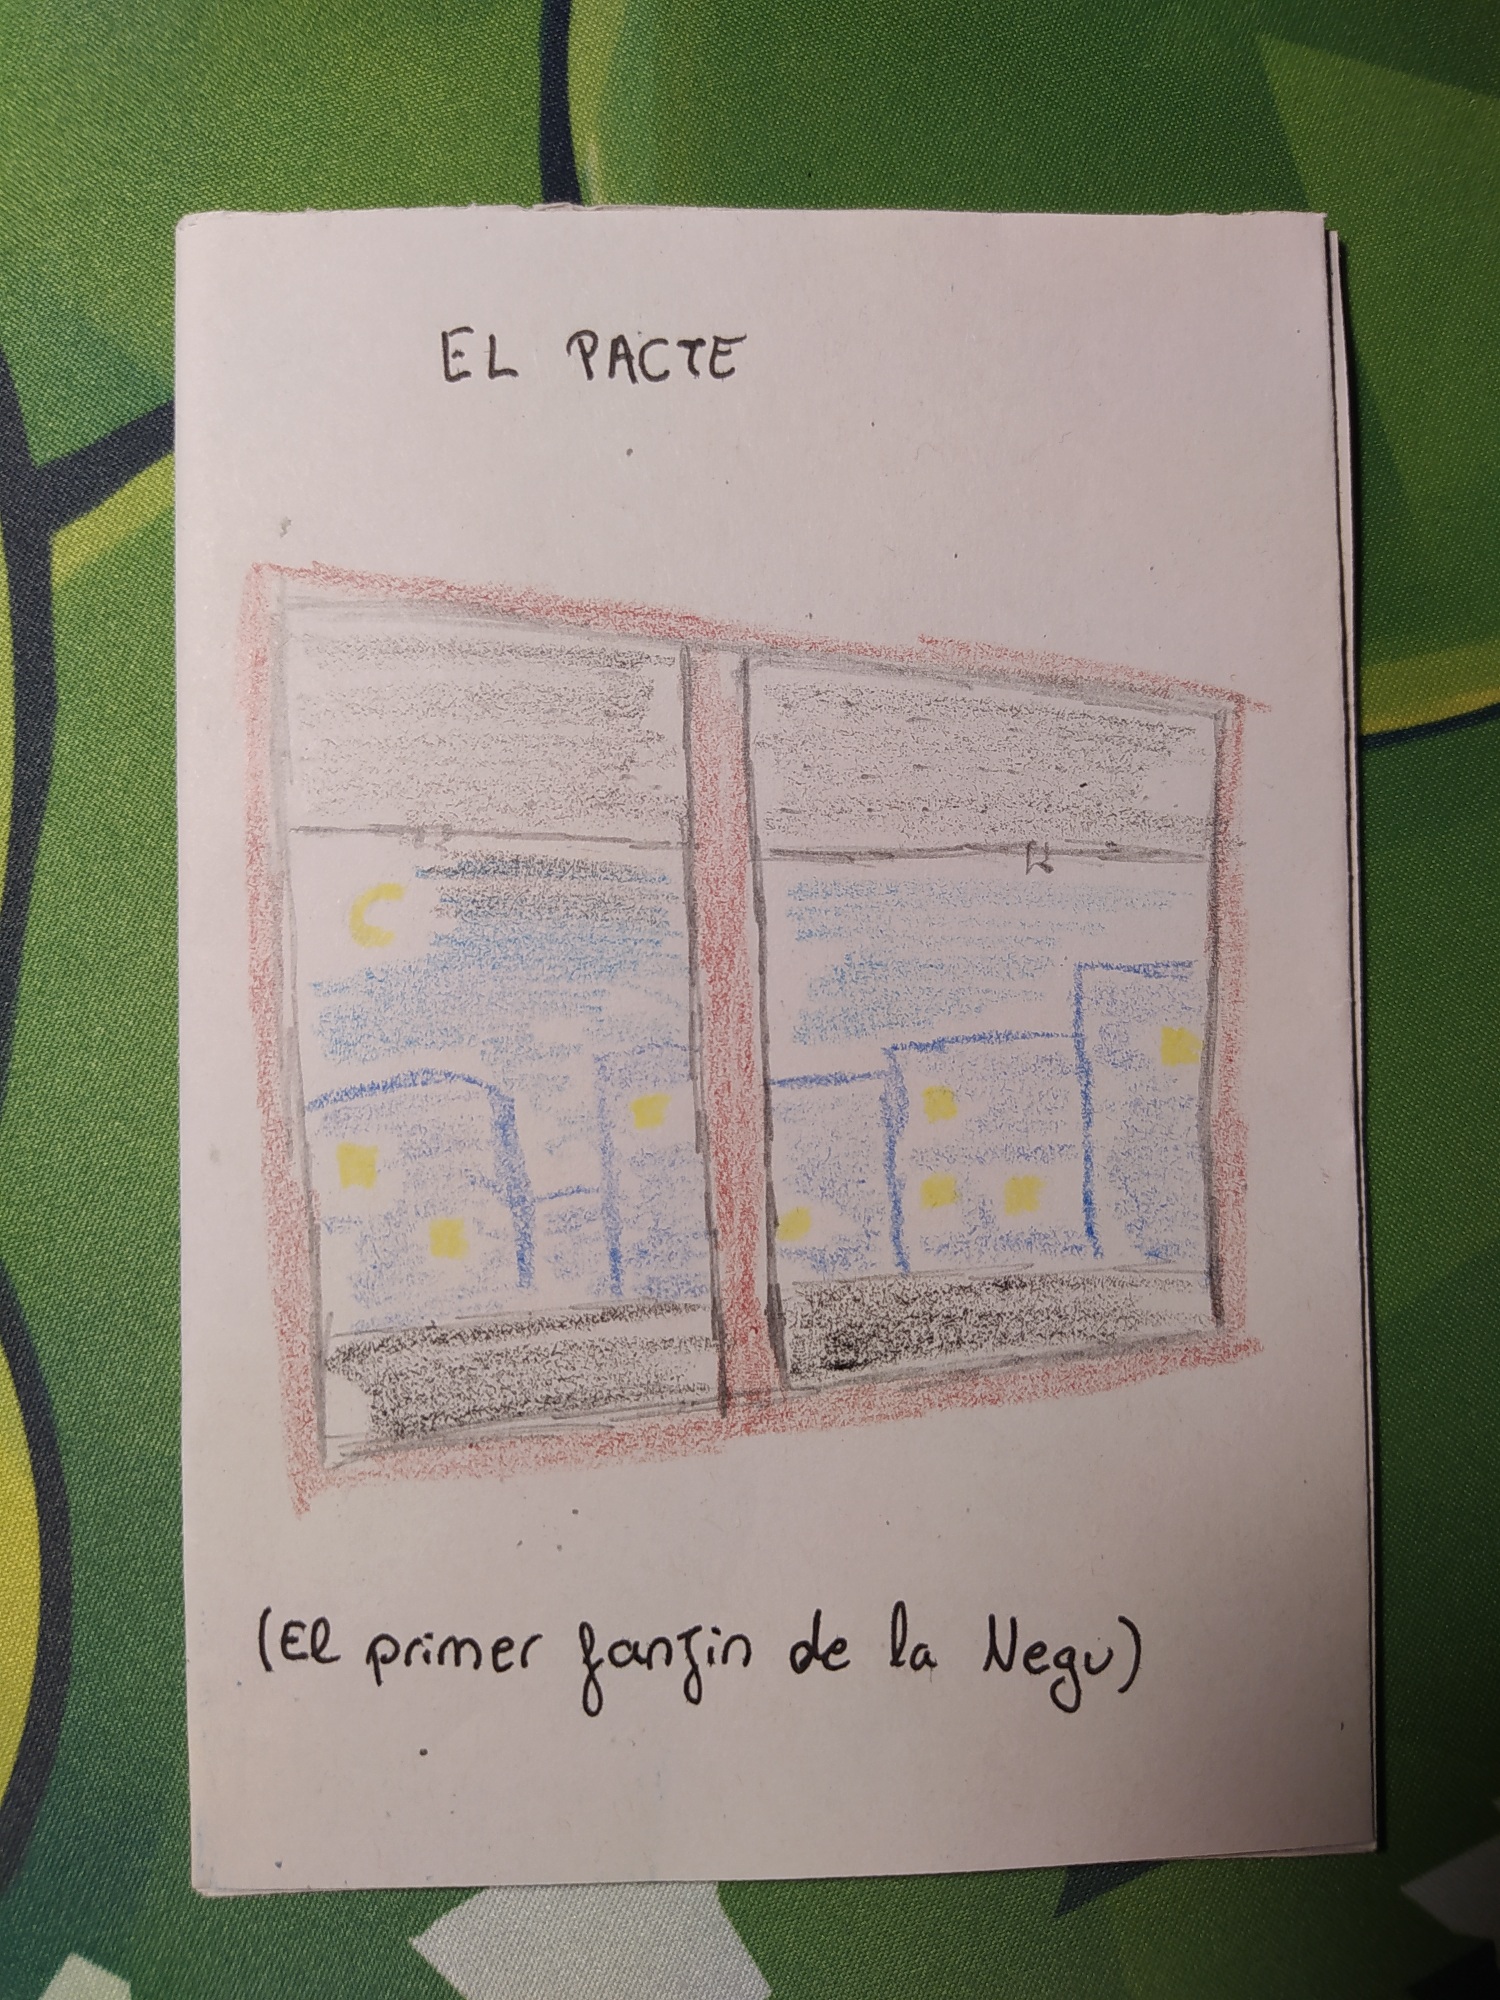 EL PACTE
(El primer fanzin de la Negu)